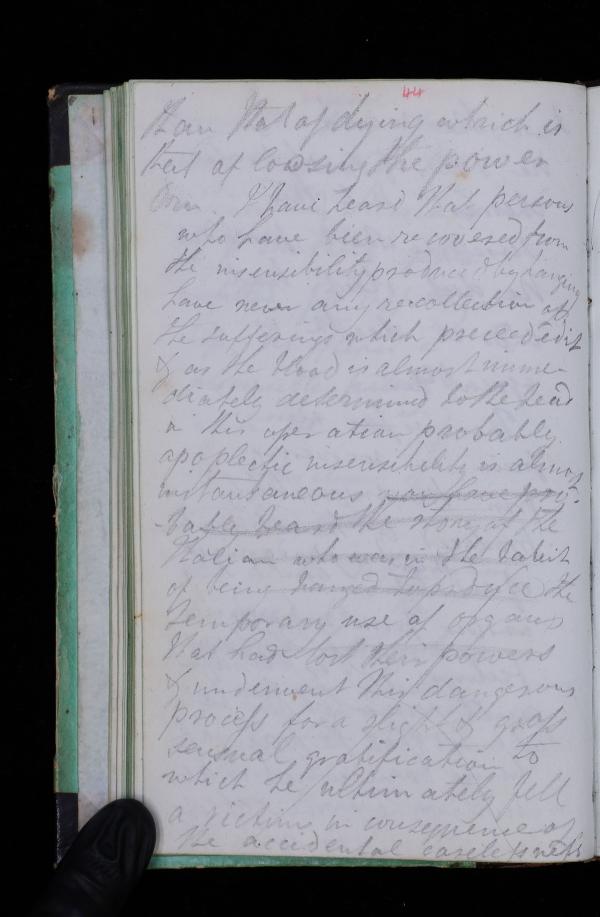 44
than that of dying which is
that of loosing the power
I have heard that persons
who have been recovered from
the insensibility produced by hanging
have never any recollection of
the sufferings which preceded it
& as the blood is almost imme-
diately determined to the head
in this operation probably
apoplectic insensibility is almost
instantaneous you have pro-
bably heard the story of the
Italian who was in the habit
of being hanged to produce the
temporary use of organs
that had lost their powers
& underwent this dangerous
process for a slight & gross
sensual gratification to
which he ultimately fell
a victim in consequence of
the accidental carelessness